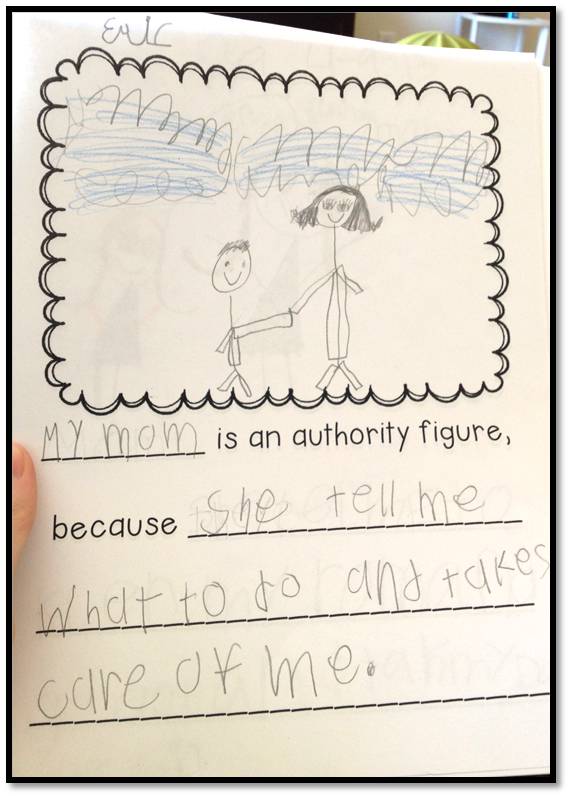 Eric
MY mom is an authority figure,
because she tell me
what to do and takes
care of me.